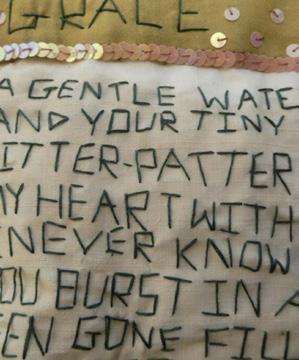 GRALE
A GENTLE WATE
AND YOUR TINY
ITTER-PATTER
MY HEART WITH
NEVER KNOW
OU BURST IN A
EEN GONE FILL